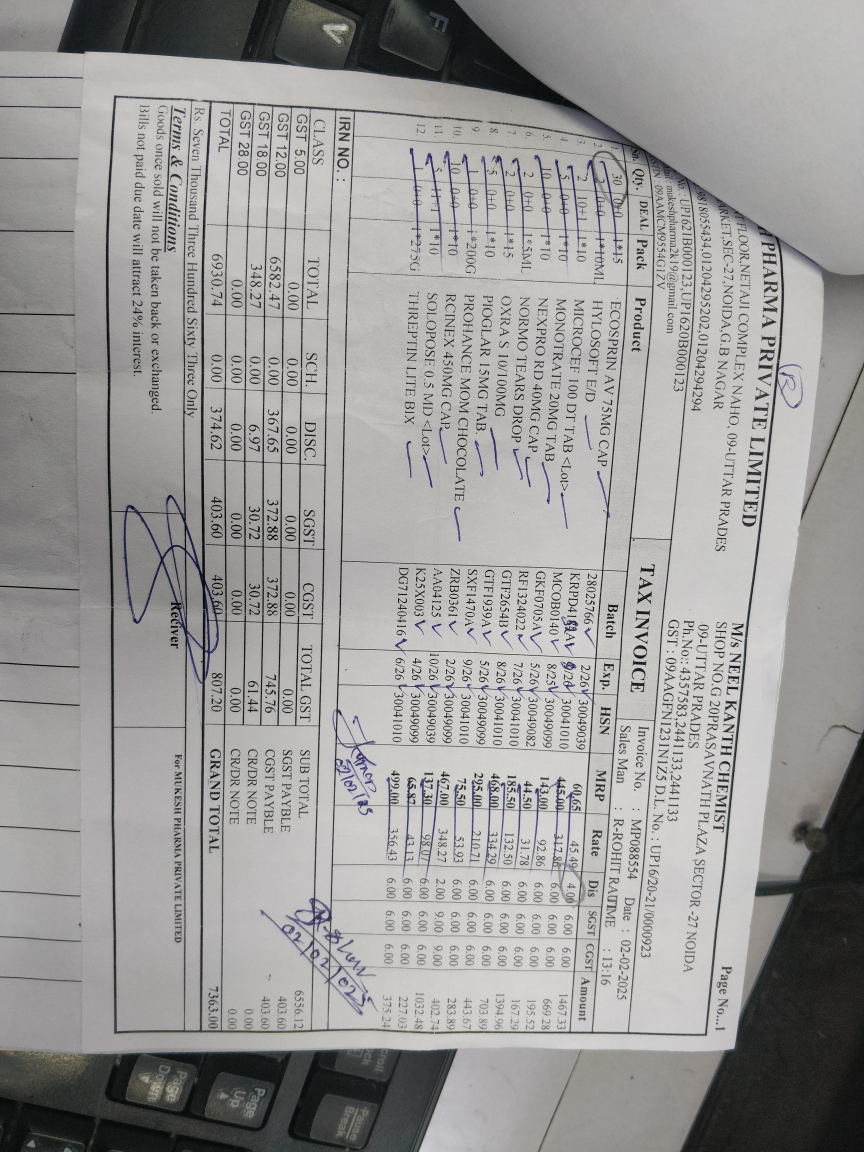 I PHARMA PRIVATE LIMITED
FLOOR,NETAJI COMPLEX NAHO, 09-UTTAR PRADES
ARKET,SEC-27,NOIDA,G.B NAGAR
9818055434,01204295202,01204294294
No. : UP1621B000123,UP1620B000123
mukeshpharma2k19@gmail.com
09AAMCM9554G1ZV
Page No...1
M/s NEEL KANTH CHEMIST
SHOP NO.G 20PRASAVNATH PLAZA SECTOR -27 NOIDA
09-UTTAR PRADES
Ph.No.: 4357583,2441133,2441133
GST : 09AAGFN1231N1Z5 D.L. No.: UP16/20-21/0000923
TAX INVOICE
Invoice No. : MP088554 Date : 02-02-2025
Sales Man : R-ROHIT RAUTIME : 13:16
Sn. Qty. DEAL Pack Product Batch Exp. HSN MRP Rate Dis SGST CGST Amount
1. 30 0+0 1*15 ECOSPRIN AV 75MG CAP 28025766 2/26 30049039 60.65 45.49 4.00 6.00 6.00 1467.33
2. 2 0+0 1*10ML HYLOSOFT E/D 9/26 30041010 445.00 317.86 6.00 6.00 6.00 669.28
3. 2 10+1 1*10 MICROCEF 100 DT TAB <Lot> MCOB0140 8/25 30049099 143.00 92.86 6.00 6.00 6.00 195.52
4. 5 0+0 1*10 MONOTRATE 20MG TAB GKF0705A 5/26 30049082 44.50 31.78 6.00 6.00 6.00 167.29
5. 10 0+0 1*10 NEXPRO RD 40MG CAP RF1324022 7/26 30041010 185.50 132.50 6.00 6.00 6.00 1394.96
6. 2 0+0 1*5ML NORMO TEARS DROP GTF2654B 8/26 30041010 468.00 334.29 6.00 6.00 6.00 703.89
7. 2 0+0 1*15 OXRA S 10/100MG GTF1939A 5/26 30049099 295.00 210.71 6.00 6.00 6.00 443.67
8. 5 0+0 1*10 PIOGLAR 15MG TAB SXF1470A 9/26 30041010 75.50 53.93 6.00 6.00 6.00 283.89
9. 1 0+0 1*200G PROHANCE MOM CHOCOLATE ZRB0361 2/26 30049099 467.00 348.27 2.00 9.00 9.00 402.74
10. 10 0+0 1*10 RCINEX 450MG CAP AA04125 10/26 30049039 137.30 98.07 6.00 6.00 6.00 1032.48
11. 5 11+1 1*10 SOLOPOSE 0.5 MD <Lot> K25X003 4/26 30049099 65.87 43.13 6.00 6.00 6.00 227.03
12. 1 0+0 1*275G THREPTIN LITE BIX DG71240416 6/26 30041010 499.00 356.43 6.00 6.00 6.00 375.24
02/02/25
02/02/2025
IRN NO. :
CLASS TOTAL SCH. DISC. SGST CGST TOTAL GST
GST 5.00 0.00 0.00 0.00 0.00 0.00 0.00
GST 12.00 6582.47 0.00 367.65 372.88 372.88 745.76
GST 18.00 348.27 0.00 6.97 30.72 30.72 61.44
GST 28.00 0.00 0.00 0.00 0.00 0.00 0.00
TOTAL 6930.74 0.00 374.62 403.60 403.60 807.20
SUB TOTAL 6556.12
SGST PAYBLE 403.60
CGST PAYBLE 403.60
CR/DR NOTE 0.00
CR/DR NOTE 0.00
GRAND TOTAL 7363.00
Rs. Seven Thousand Three Hundred Sixty Three Only
Terms & Conditions
Goods once sold will not be taken back or exchanged.
Bills not paid due date will attract 24% interest.
Reciver
For MUKESH PHARMA PRIVATE LIMITED
Page Up
Page Down
Pause Break
F
V